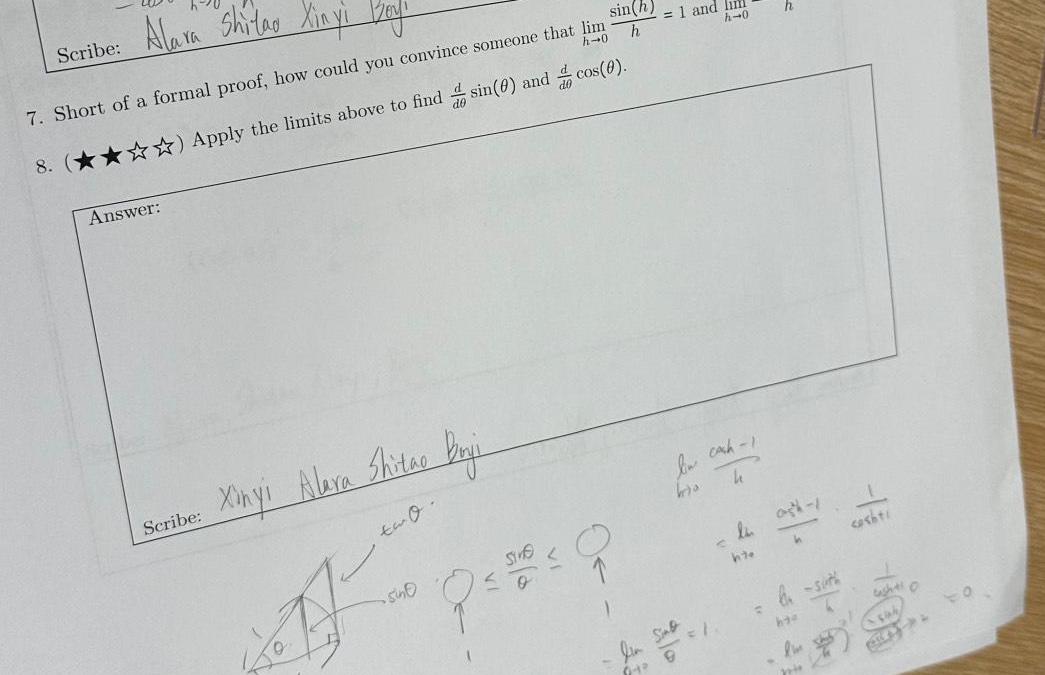 Scribe: Alara Shitao Xinyi Boyi
7. Short of a formal proof, how could you convince someone that lim h→0 sin(h)/h = 1 and lim h→0 h
8. (★★☆☆) Apply the limits above to find d/dθ sin(θ) and d/dθ cos(θ).
Answer:
Scribe: Xinyi Alara Shitao Boyi
tanθ
sinθ
θ
≤ sinθ/θ ≤
1
1
= lim sinθ/θ = 1.
lim h→0 cosh-1/h
= lim h→0 cos²h-1/h · 1/cosh+1
= lim h→0 -sin²h/h · 1/cosh+1
= lim h→0 sinh/h
= 0.